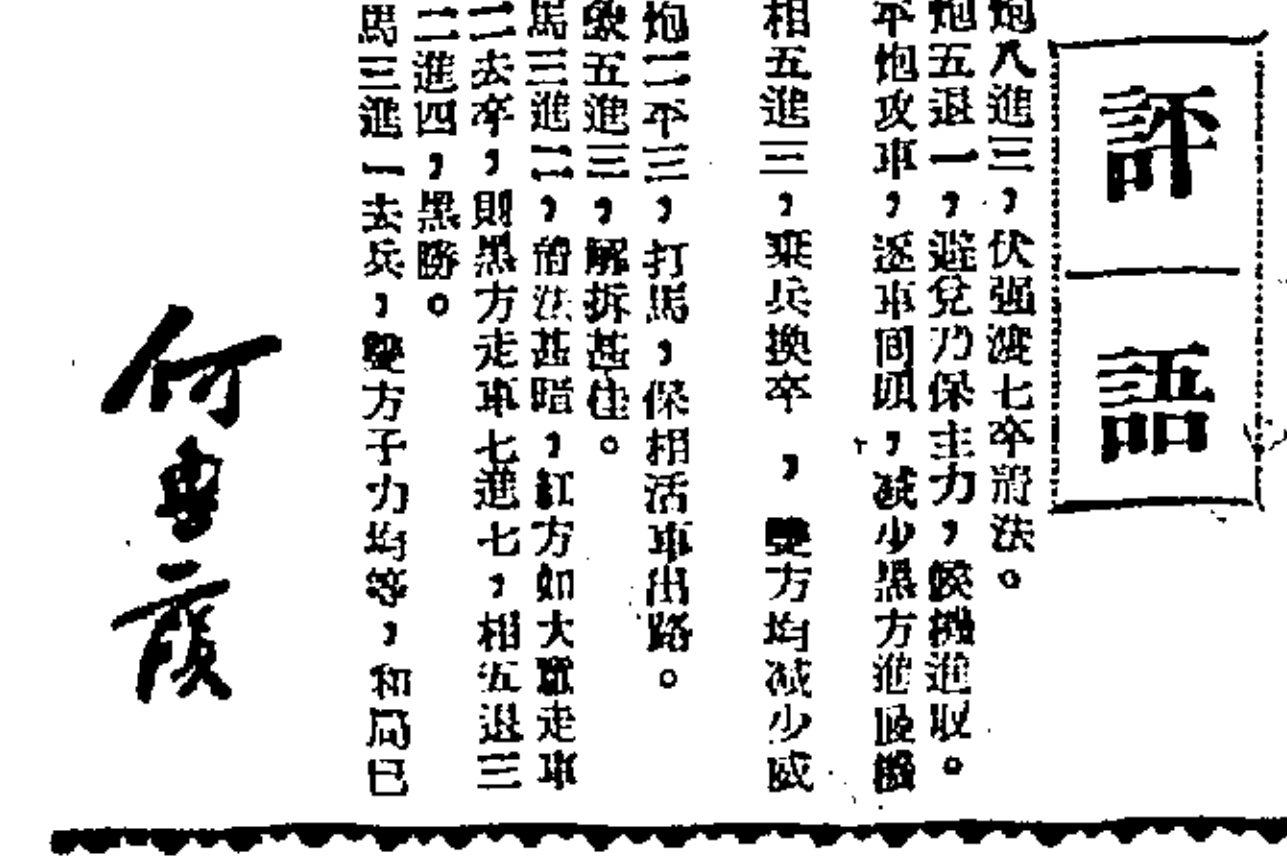 評語
炮八進三，伏强渡七卒消法。
炮五退一，避兌乃保主力，候機進取。
平炮攻車，逐車回頭，减少黑方進展機
相五進三，棄兵換卒，雙方均减少威
炮二平三，打馬，保相活車出路。
象五進三，解拆甚佳。
馬三進二，着法甚暗，紅方如大意走車
二去卒，則黑方走車七進七，相五退三
二進四，黑勝。
馬三進一去兵，雙方子力均等，和局已
何